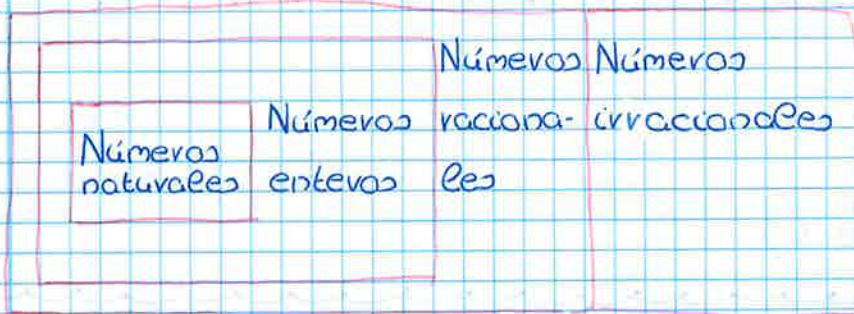 Números
naturales
Números
enteros
Números
raciona-
les
Números
irracionales